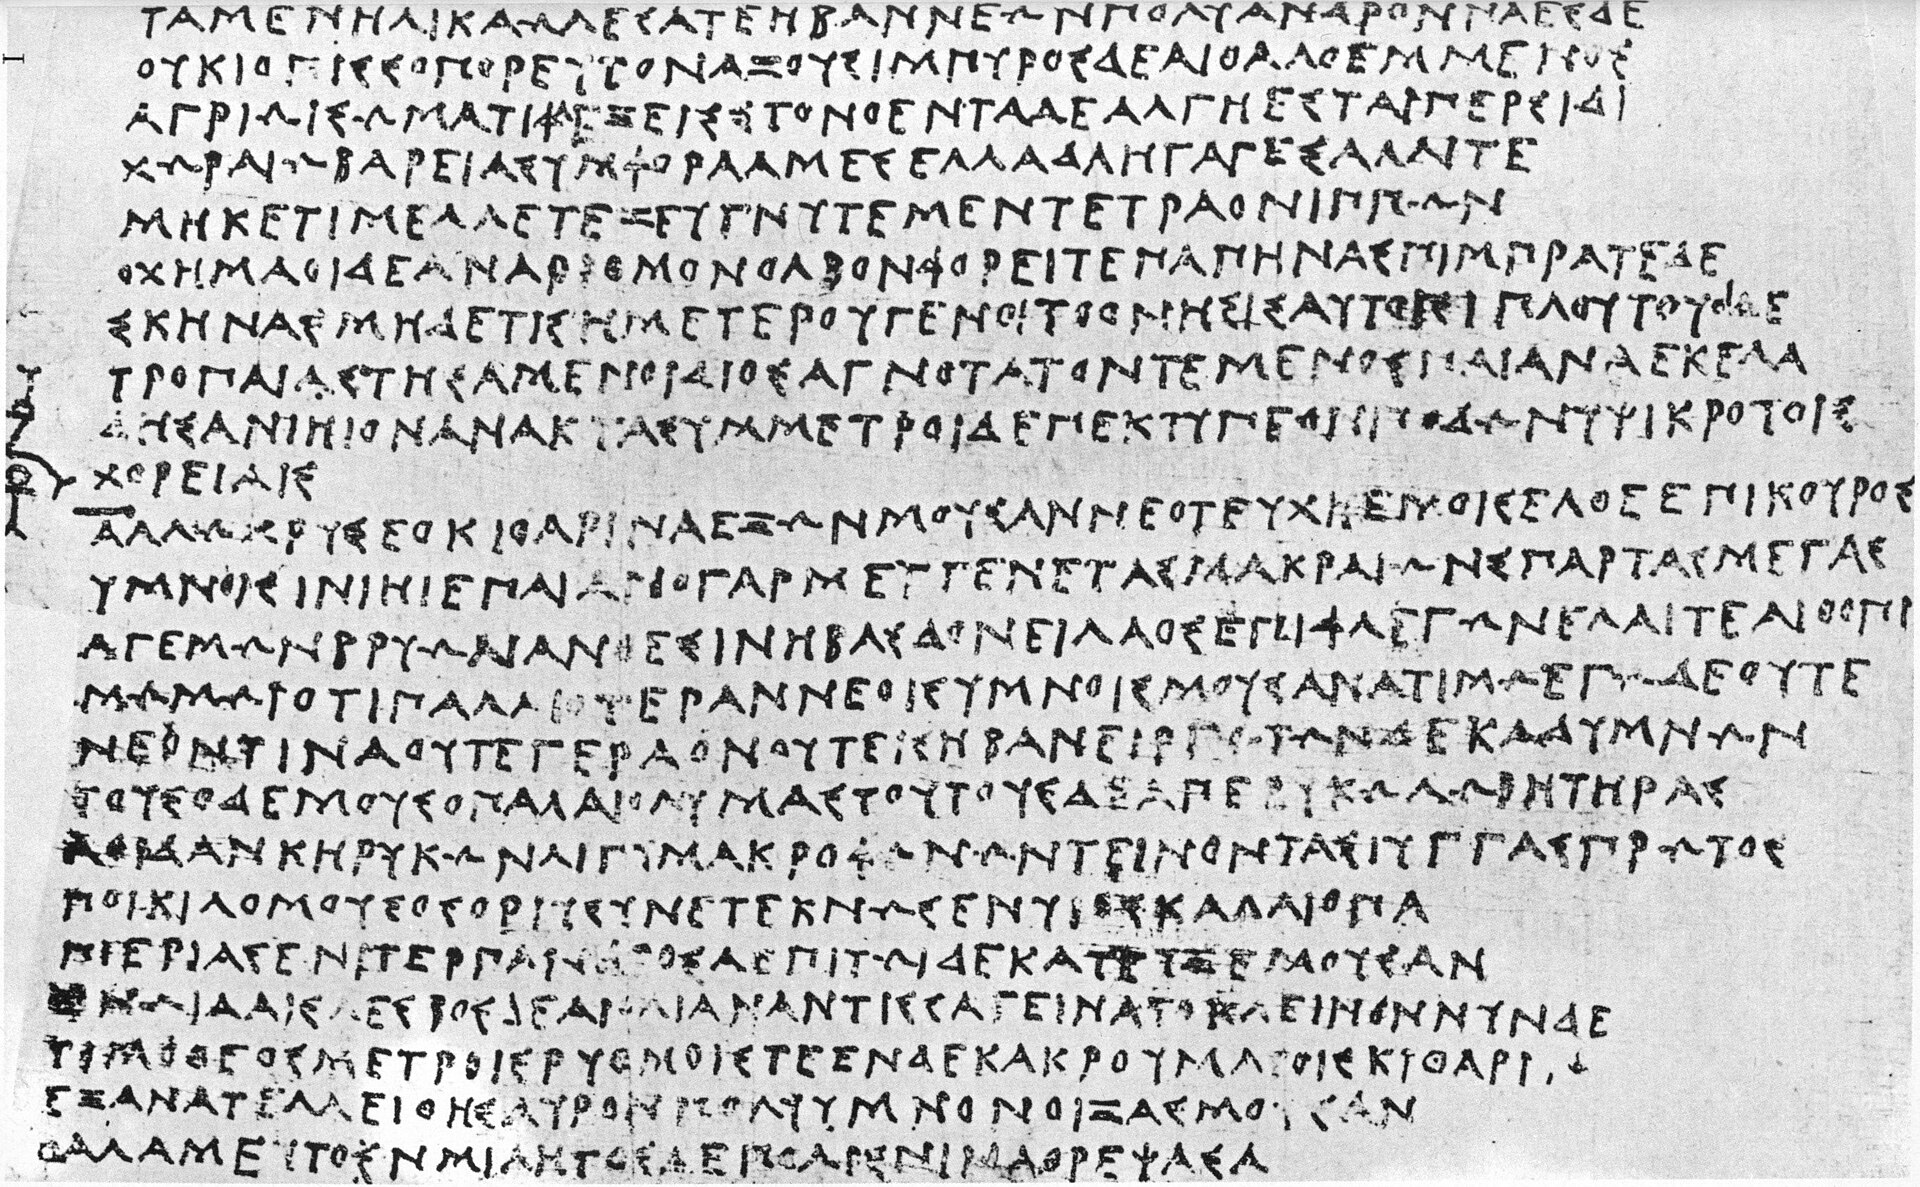 ΤΑΜΕΝΗΛΙΚΑΩΛΕΣΑΤΕΗΒΑΝΝΕΩΝΠΟΛΥΑΝΔΡΟΝΝΑΕΣΔΕ
ΟΥΚΙΟΠΙΣΣΟΠΟΡΕΥΤΟΝΑΞΟΥΣΙΜΠΥΡΟΣΔΕΑΙΘΑΛΟΕΜΜΕΝΟΣ
ΑΓΡΙΩΙΣΩΜΑΤΙΦΛΕΞΕΙΣΤΟΝΟΕΝΤΑΔΕΑΛΓΗΕΣΤΑΙΠΕΡΣΙΔΙ
ΧΩΡΑΙΩΒΑΡΕΙΑΣΥΜΦΟΡΑΑΜΕΣΕΛΛΑΔΑΗΓΑΓΕΣΑΛΛΙΤΕ
ΜΗΚΕΤΙΜΕΛΛΕΤΕΖΕΥΓΝΥΤΕΜΕΝΤΕΤΡΑΟΝΙΠΠΩΝ
ΟΧΗΜΑΟΙΔΕΑΝΑΡΙΘΜΟΝΟΛΒΟΝΦΟΡΕΙΤΕΠΑΠΗΝΑΣΠΙΜΠΡΑΤΕΔΕ
ΣΚΗΝΑΣΜΗΔΕΤΙΣΗΜΕΤΕΡΟΥΓΕΝΟΙΤΟΟΝΗΣΙΣΑΥΤΟΙΣΙΠΛΟΥΤΟΥΟΙΔΕ
ΤΡΟΠΑΙΑΣΤΗΣΑΜΕΝΟΙΔΙΟΣΑΓΝΟΤΑΤΟΝΤΕΜΕΝΟΣΠΑΙΑΝΑΕΚΕΛΑ
ΔΗΣΑΝΙΗΙΟΝΑΝΑΚΤΑΣΥΜΜΕΤΡΟΙΔΕΠΕΚΤΥΠΕΟΝΠΟΔΩΝΥΨΙΚΡΟΤΟΙΣ
ΧΟΡΕΙΑΙΣ
ΑΛΛΩΧΡΥΣΕΟΚΙΘΑΡΙΝΑΕΞΩΝΜΟΥΣΑΝΝΕΟΤΕΥΧΗΕΜΟΙΣΕΛΘΕΕΠΙΚΟΥΡΟΣ
ΥΜΝΟΙΣΙΝΙΗΙΕΠΑΙΑΝΟΓΑΡΜΕΥΓΕΝΕΤΑΣΜΑΚΡΑΙΩΝΣΠΑΡΤΑΣΜΕΓΑΣ
ΑΓΕΜΩΝΒΡΥΩΝΑΝΘΕΣΙΝΗΒΑΣΔΟΝΕΙΛΑΟΣΕΠΙΦΛΕΓΩΝΕΛΑΙΤΕΑΙΘΟΠΙ
ΜΩΜΩΙΟΤΙΠΑΛΑΙΟΤΕΡΑΝΝΕΟΙΣΥΜΝΟΙΣΜΟΥΣΑΝΑΤΙΜΩΕΓΩΔΕΟΥΤΕ
ΝΕΟΝΤΙΝΑΟΥΤΕΓΕΡΑΟΝΟΥΤΕΙΣΗΒΑΝΕΙΡΓΩΤΩΝΔΕΚΑΔΥΜΝΩΝ
ΤΟΥΣΟΔΕΜΟΥΣΟΠΑΛΑΙΟΛΥΜΑΣΤΟΥΤΟΥΣΔΕΑΠΕΡΥΚΩΛΩΒΗΤΗΡΑΣ
ΑΟΙΔΑΝΚΗΡΥΚΩΝΛΙΓΥΜΑΚΡΟΦΩΝΩΝΤΕΙΝΟΝΤΑΣΙΥΓΓΑΣΠΡΩΤΟΣ
ΠΟΙΚΙΛΟΜΟΥΣΟΣΟΡΙΥΣΥΝΕΤΕΚΝΩΣΕΝΥΙΟΣΚΑΛΛΙΟΠΑ
ΠΙΕΡΙΑΣΕΝΙΤΕΡΠΑΝΔΡΟΣΔΕΠΙΤΩΙΔΕΚΑΤΕΥΞΕΜΟΥΣΑΝ
ΕΝΩΙΔΑΙΣΛΕΣΒΟΣΔΕΑΙΩΛΙΑΝΑΝΤΙΣΣΑΓΕΙΝΑΤΟΚΛΕΙΝΟΝΝΥΝΔΕ
ΤΙΜΟΘΕΟΣΜΕΤΡΟΙΣΡΥΘΜΟΙΣΤΕΕΝΔΕΚΑΚΡΟΥΜΑΤΟΙΣΚΙΘΑΡΙΝ
ΕΞΑΝΑΤΕΛΛΕΙΘΗΣΑΥΡΟΝΠΟΛΥΥΜΝΟΝΟΙΞΑΣΜΟΥΣΑΝ
ΘΑΛΑΜΕΥΤΟΝΜΙΛΗΤΟΣΔΕΠΟΛΙΣΝΙΝΑΘΡΕΨΑΣΑ